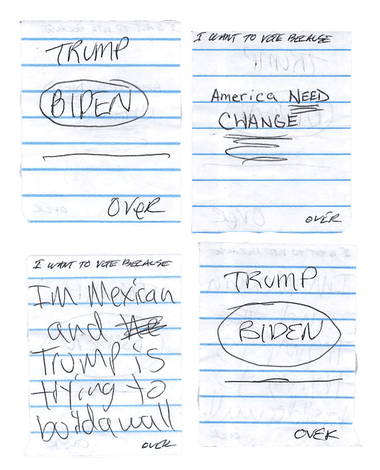 TRUMP
BIDEN
OVER
I WANT TO VOTE BECAUSE
America NEED
CHANGE
OVER
I WANT TO VOTE BECAUSE
Im Mexican
and
Trump is
trying to
OVER
TRUMP
BIDEN
OVER